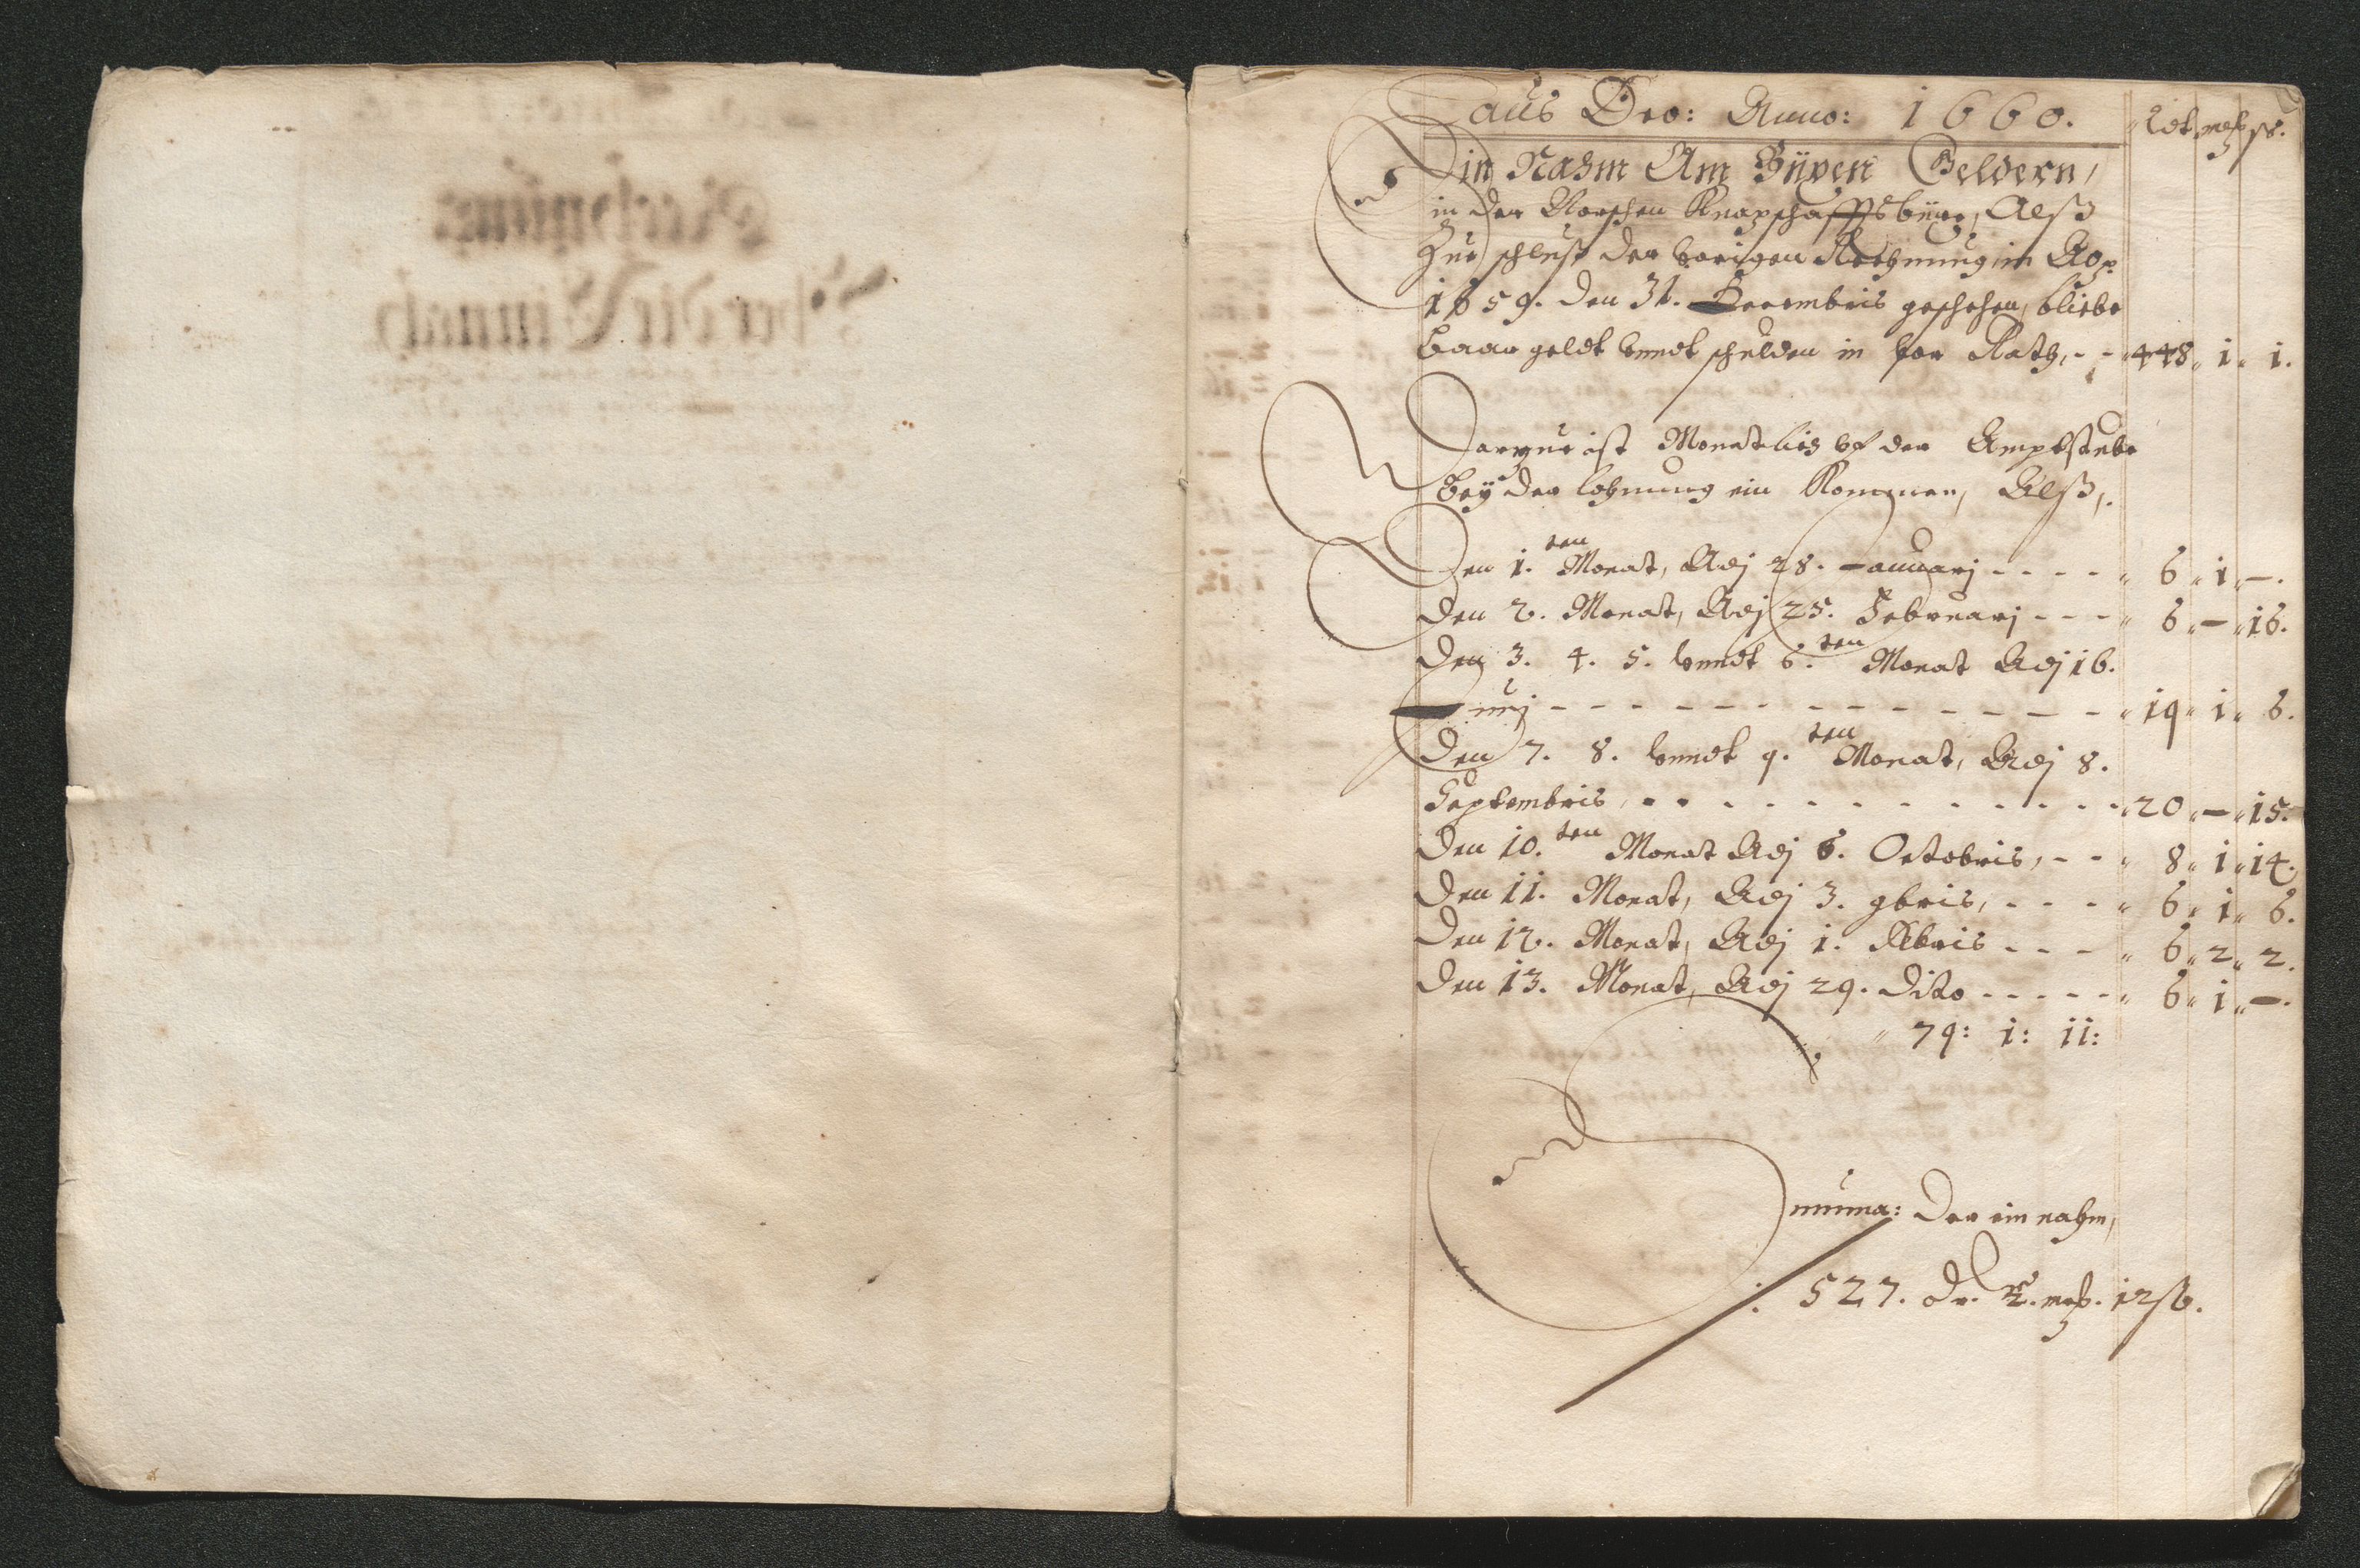 Laus Deo: Anno: 1660.
Rdt mrk ß.
Ein Nahm Am Büxen Geldern,
in der Knapschafftsbüxe, Alß
Zue schluß der vorigen Rechnung im Ao.
1659. den 31. Decembris geschehen, bliebe
baar geldt vnndt schulden in vor Rath, - - 448 " 1 " 1.
Darzue ist Monatlich vf der Amptstube
bey der lohnung ein Kommen, Alß,
Den 1. ten Monat, Adj 28. Januarj - - - - " 6 " 1 " —.
Den 2. Monat, Adj 25. Februarj - - - " 6 " — " 16.
Den 3. 4. 5. vnndt 6. ten Monat Adj 16.
Junj - - - - - - - - - - - - - - " 19 " 1 " 6.
Den 7. 8. vnndt 9. ten Monat, Adj 8.
Septembris, - - - - - - - - - - - - " 20 " — " 15.
Den 10. ten Monat Adj 6. Octobris, - - " 8 " 1 " 14.
Den 11. Monat, Adj 3. 9bris, - - - " 6 " 1 " 6.
Den 12. Monat, Adj 1. Xbris - - - " 6 " 2 " 2.
Den 13. Monat, Adj 29. dito - - - - - " 6 " 1 " —.
" 79: 1: 11:
Summa: Der ein nahm,
: 527. dr. 2. mrk. 12 ß.